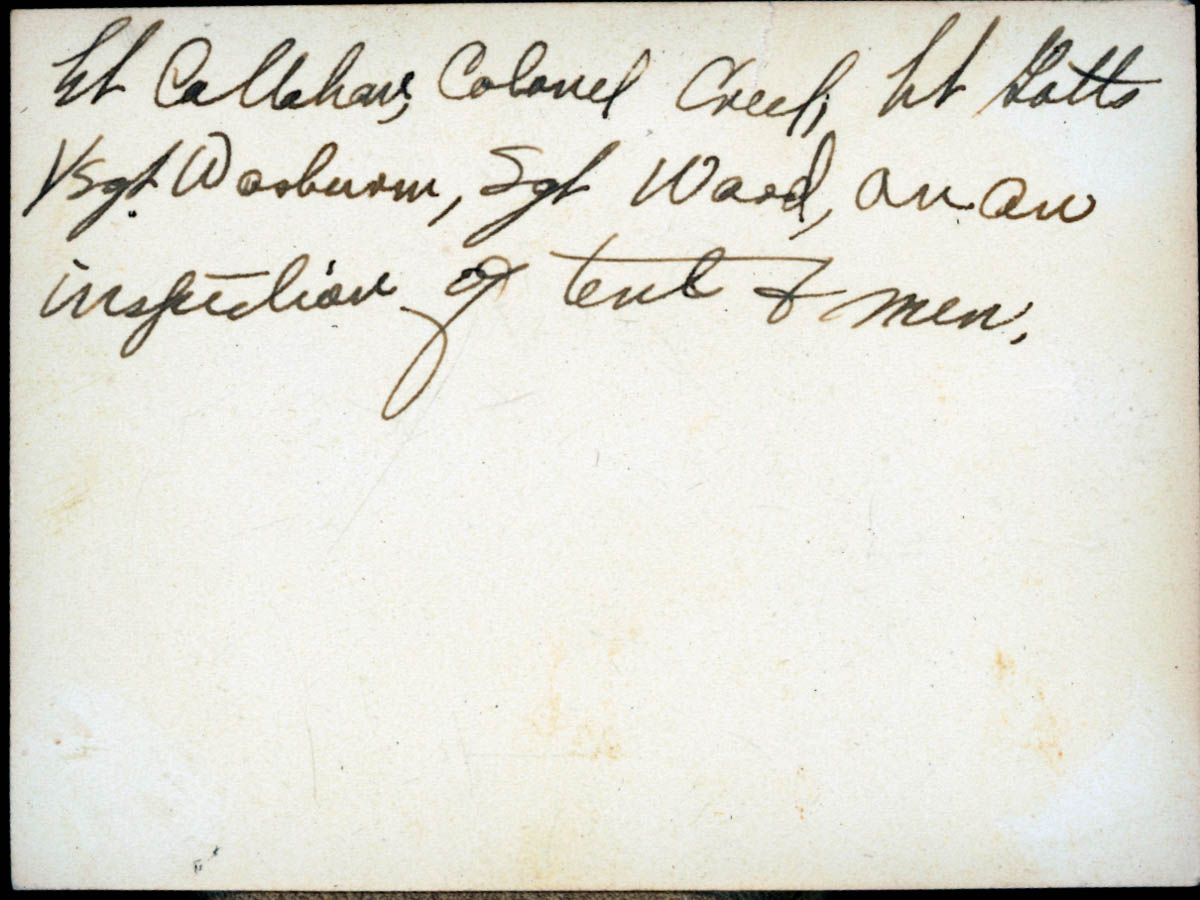 Lt Callahan, Colonel Creel, Lt Botts
1/Sgt Wasburnm, Sgt Ward, on an
inspection of tent & men,